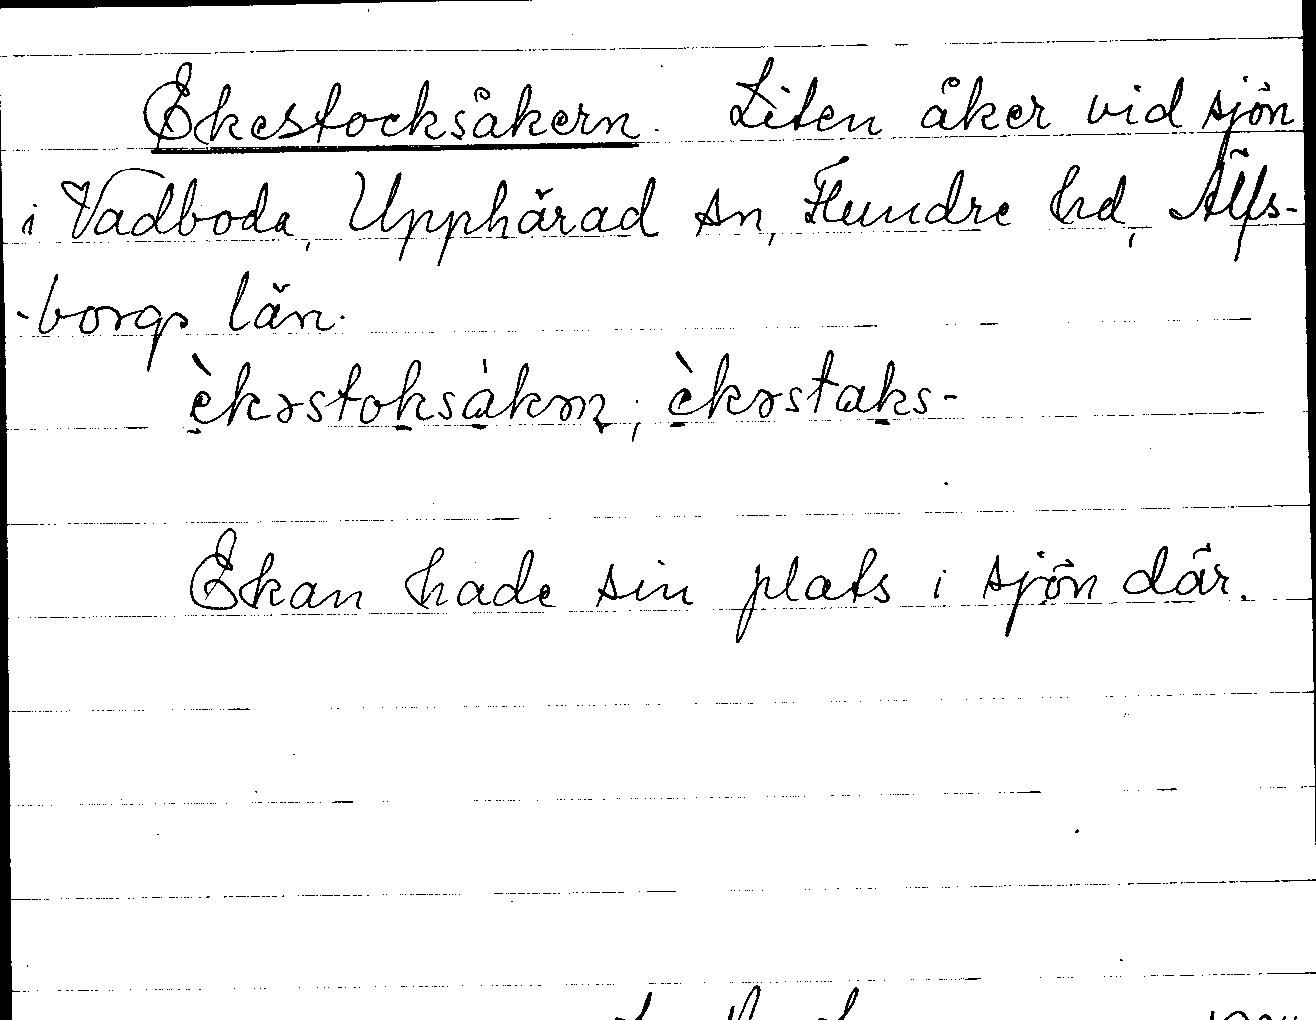 Ekestocksåkern. Liten åker vid sjön
i Vadboda, Upphärad sn, Flundre hd, Älfs-
-borgs län.
è̱kəstoḵsȧ̱kəṃ; è̱kəstaḵs-
Ekan hade sin plats i sjön där.